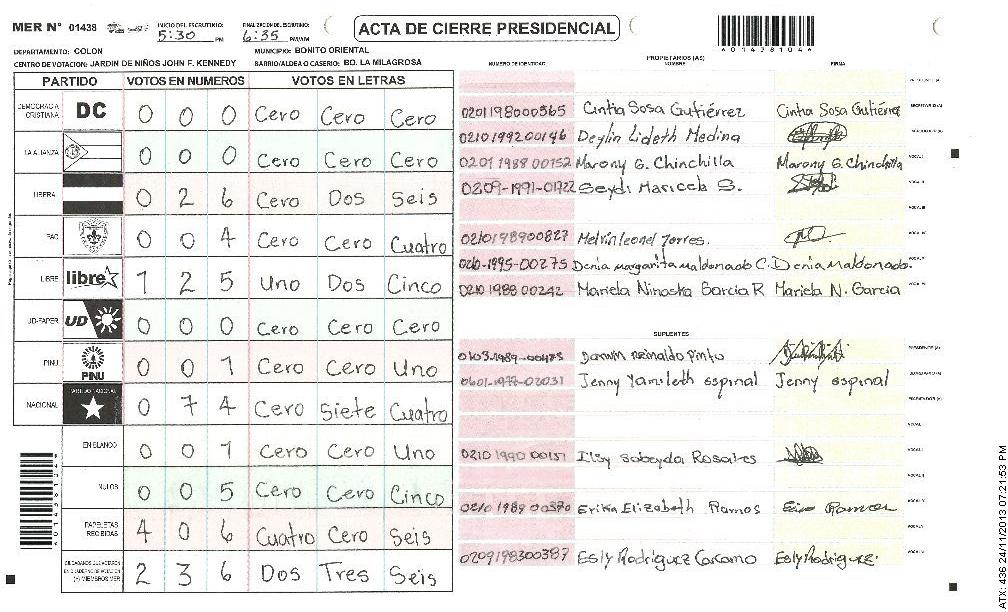 MER N° 01438 INICIO DEL ESCRUTINIO: 5:30 PM FINALIZACION DEL ESCRUTINIO: 6:35 PM/AM
ACTA DE CIERRE PRESIDENCIAL
DEPARTAMENTO: COLON MUNICIPIO: BONITO ORIENTAL
CENTRO DE VOTACION: JARDIN DE NIÑOS JOHN F. KENNEDY BARRIO/ALDEA O CASERIO: BO. LA MILAGROSA
PARTIDO VOTOS EN NUMEROS VOTOS EN LETRAS
DEMOCRACIA CRISTIANA DC 0 0 0 Cero Cero Cero
LA ALIANZA 0 0 0 Cero Cero Cero
LIBERAL 0 2 6 Cero Dos Seis
PAC 0 0 4 Cero Cero Cuatro
LIBRE libre 1 2 5 Uno Dos Cinco
UD-FAPER UD 0 0 0 Cero Cero Cero
PINU PINU 0 0 1 Cero Cero Uno
NACIONAL PARTIDO NACIONAL 0 7 4 Cero Siete Cuatro
EN BLANCO 0 0 1 Cero Cero Uno
NULOS 0 0 5 Cero Cero Cinco
PAPELETAS RECIBIDAS 4 0 6 Cuatro Cero Seis
CIUDADANOS QUE VOTARON EN CUADERNO DE VOTACION (+) MIEMBROS MER 2 3 6 Dos Tres Seis
PROPIETARIOS (AS)
NUMERO DE IDENTIDAD NOMBRE FIRMA
0201198000565 Cintia Sosa Gutiérrez Cintia Sosa Gutiérrez
0210199200146 Deylin Lideth Medina
0201 1988 00152 Marony G. Chinchilla Marony G. Chinchilla
0209-1991-01922 Seydi Maricela S.
0210198900827 Melvin leonel Torres.
0210-1995-00275 Denia margarita maldonado C. Denia maldonado.
0210 1988 00242 Mariela Ninoska Garcia R Mariela N. Garcia
SUPLENTES
0103-1989-00475 Darwin Reinaldo Pinto
0601-1977-02031 Jenny Yamileth espinal Jenny espinal
0210 1990 00157 Ilsy Sobeyda Rosales
0210 1988 00370 Erika Elizabeth Ramos
0209198300387 Esly Rodriguez Carcamo Esly Rodriguez.
ATX: 436 24/11/2013 07:21:53 PM